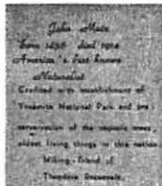 John Muir
born 1838 died 1914
America's best known
Naturalist
Credited with establishment of
Yosemite National Park and pre-
servation of the sequoia trees -
oldest living things in this nation.
Hiking friend of
Theodore Roosevelt.